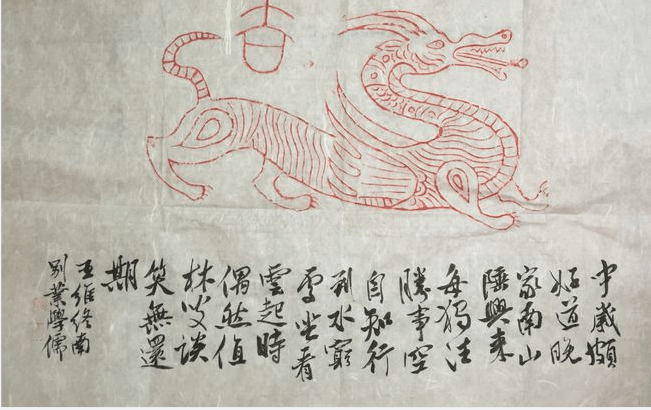 吉
中歲頗
好道晚
家南山
陲興來
每獨往
勝事空
自知行
到水窮
處坐看
雲起時
偶然值
林叟談
笑無還
期
王維終南
別業學儒